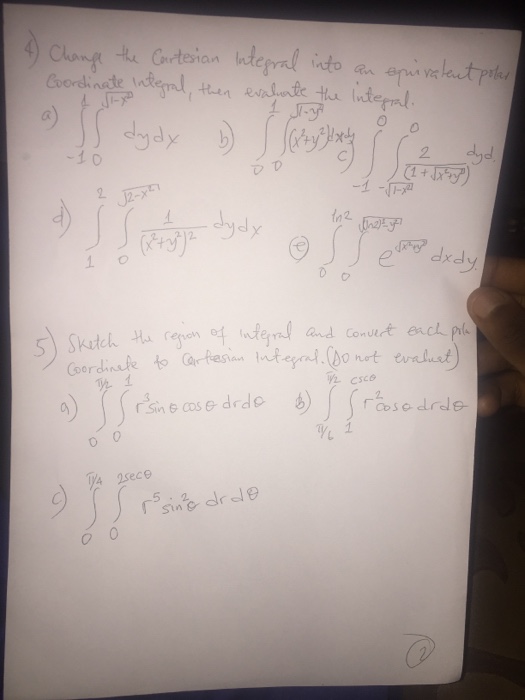 4) Change the Cartesian Integral into an equivalent polar
Coordinate integral, then evaluate the integral.
a) ∫_{-1}^{1} ∫_{0}^{√(1-x²)} dydx b) ∫_{0}^{1} ∫_{0}^{√(1-y²)} (x²+y²)dxdy c) ∫_{-1}^{0} ∫_{-√(1-x²)}^{0} 2/(1+√(x²+y²)) dyd
d) ∫_{1}^{2} ∫_{0}^{√(2-x²)} 1/(x²+y²)² dydx e) ∫_{0}^{ln2} ∫_{0}^{√((ln2)²-y²)} e^{√(x²+y²)} dxdy
5) Sketch the region of integral and convert each pola
Coordinate to Cartesian Integral. (Do not evaluat)
a) ∫_{0}^{π/2} ∫_{0}^{1} r³ sinθ cosθ drdθ b) ∫_{π/6}^{π/2} ∫_{1}^{cscθ} r² cosθ drdθ
c) ∫_{0}^{π/4} ∫_{0}^{2secθ} r⁵ sin²θ drdθ
2